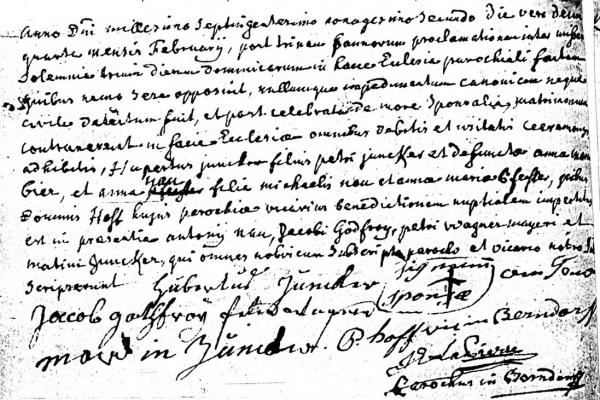 Anno Dni millesimo Septingentesimo nonagesimo Secundo die vero decima
quarta mensis February, post trinam Bannorum proclamationem inter
Solemnia trium dierum dominicarum in hacce Ecclesia parochiali factam
quibus nemo Sese opposuit, nullumque impedimentum canonicum neque
civile detectum fuit, et post celebrata de more Sponsalia, matrimonium
contraxerunt in facie Ecclesiæ omnibus debitis et usitatis Ceeremoniis
adhibitis, hupertus juncker filius petri juncker et defunctæ annæ
bier, et anna nau filia michaelis nau et annæ mariæ pfeiffer, quibus
Domnus Hoff hujus parochiæ vicarius benedictionem nuptialem impertitus
est in præsentia antonij nau, Jacobi Godfroy, petri wagner mayeri et
matini Juncker, qui omnes nobiscum Subscripto parocho et vicario nostro
Scripserunt Hubertus Juncker Signum
Jacob gothfroÿ sponsæ
Juncker. P. hoff vic in Berndorff
Parochus in Berndorff